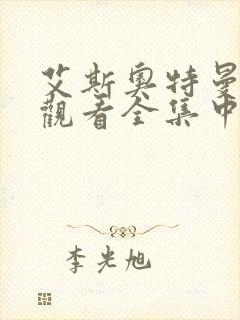 艾斯奥特曼
觀看全集中
李光旭